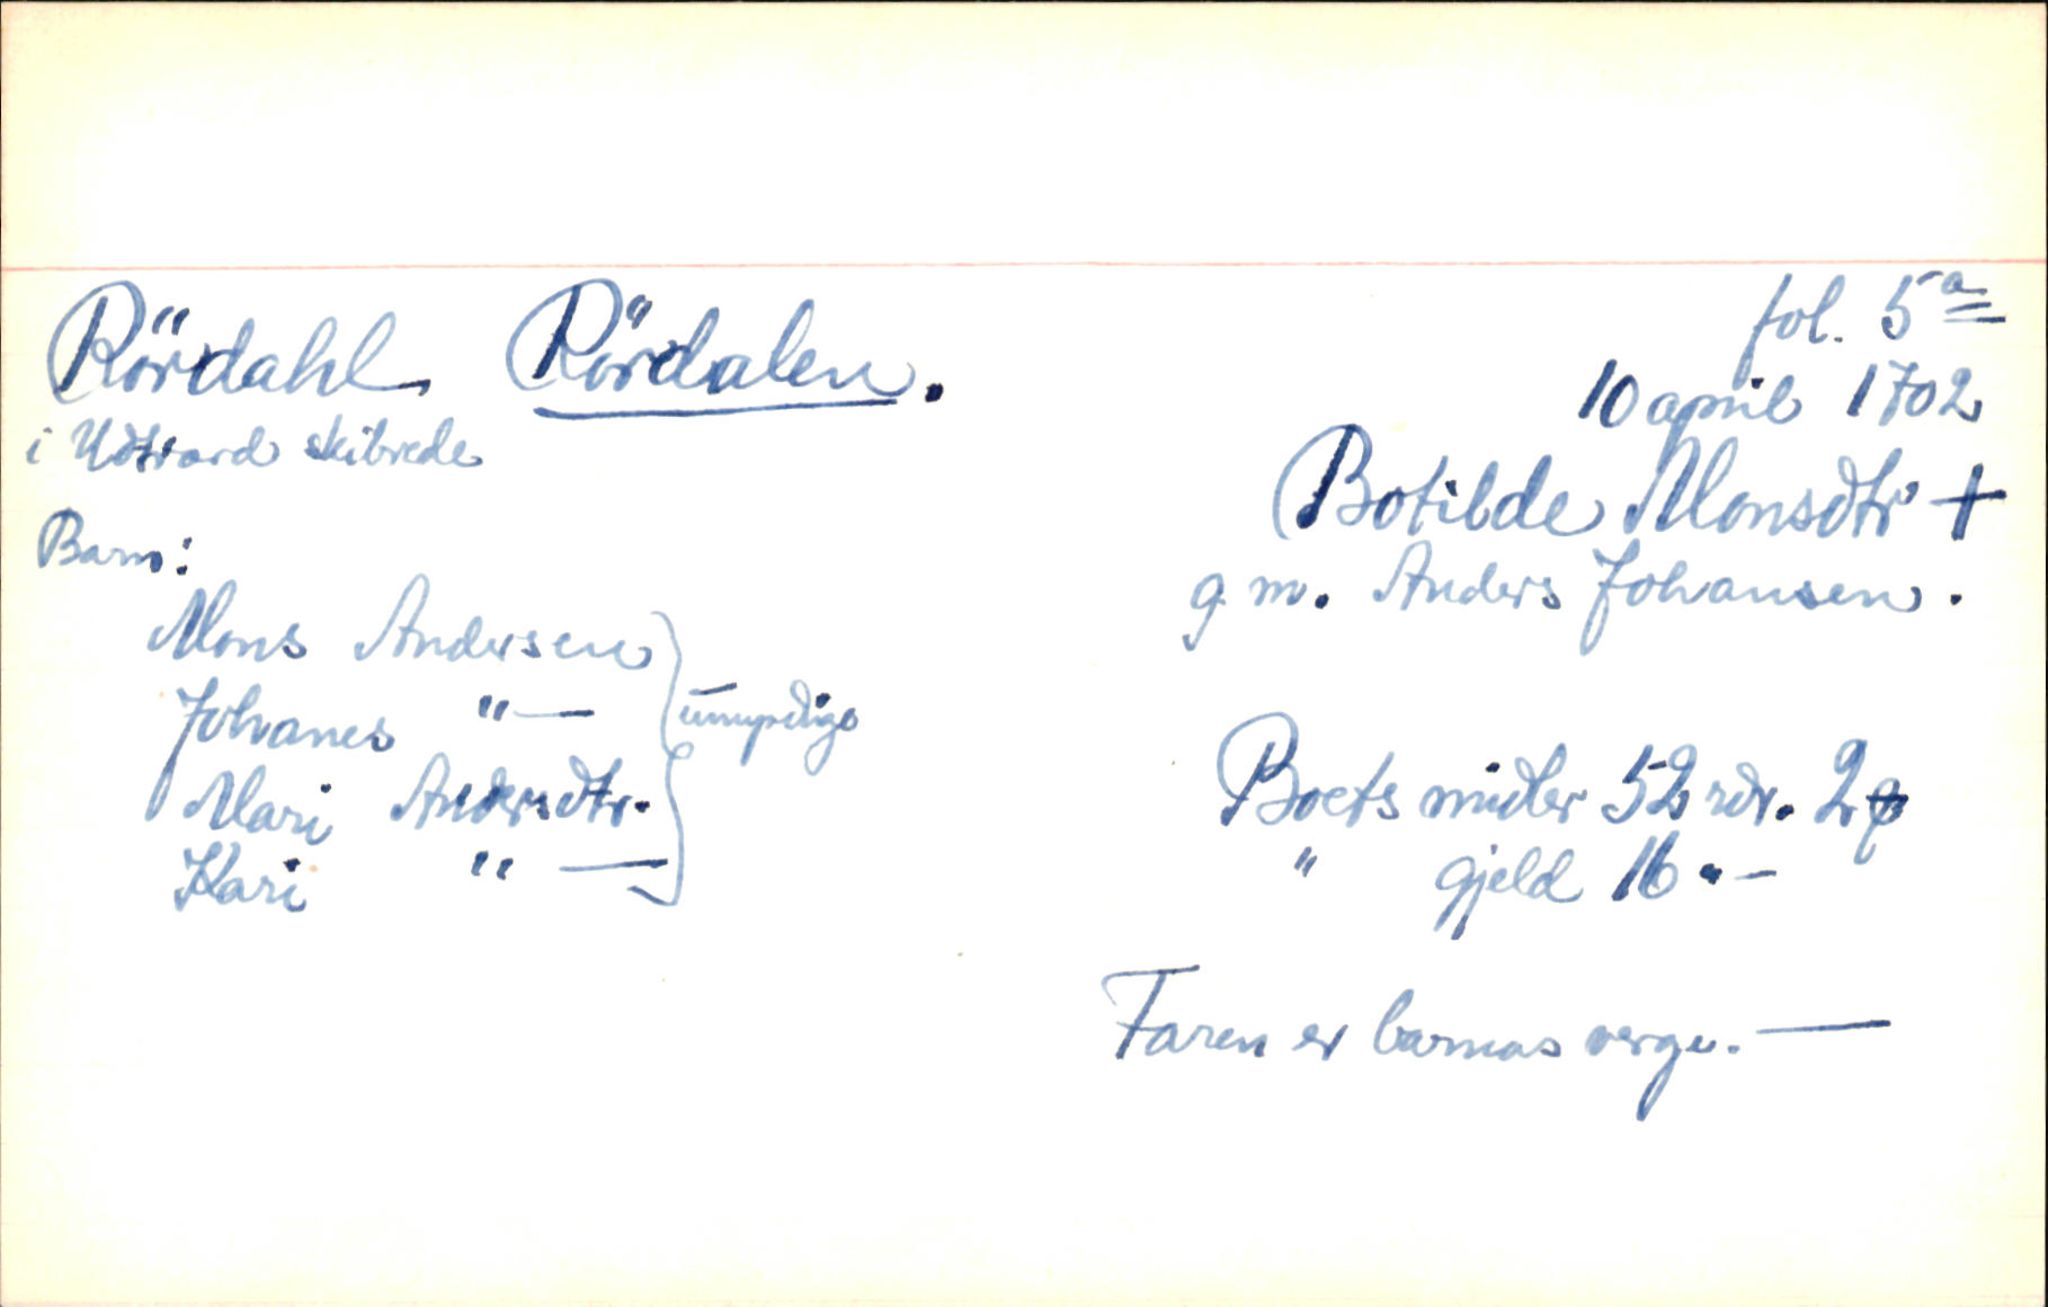 Rördahl Rördalen.
i Udtvard skibrede
fol. 5a
10 april 1702
Botilde Monsdtr +
g. m. Anders Johansen.
Barn:
Mons Andersen
Johanes " —
Mari Andersdtr.
Kari " —
umyndige
Boets midler 52 rdr. 2
" gjeld 16 " —
Faren er barnas verge. —